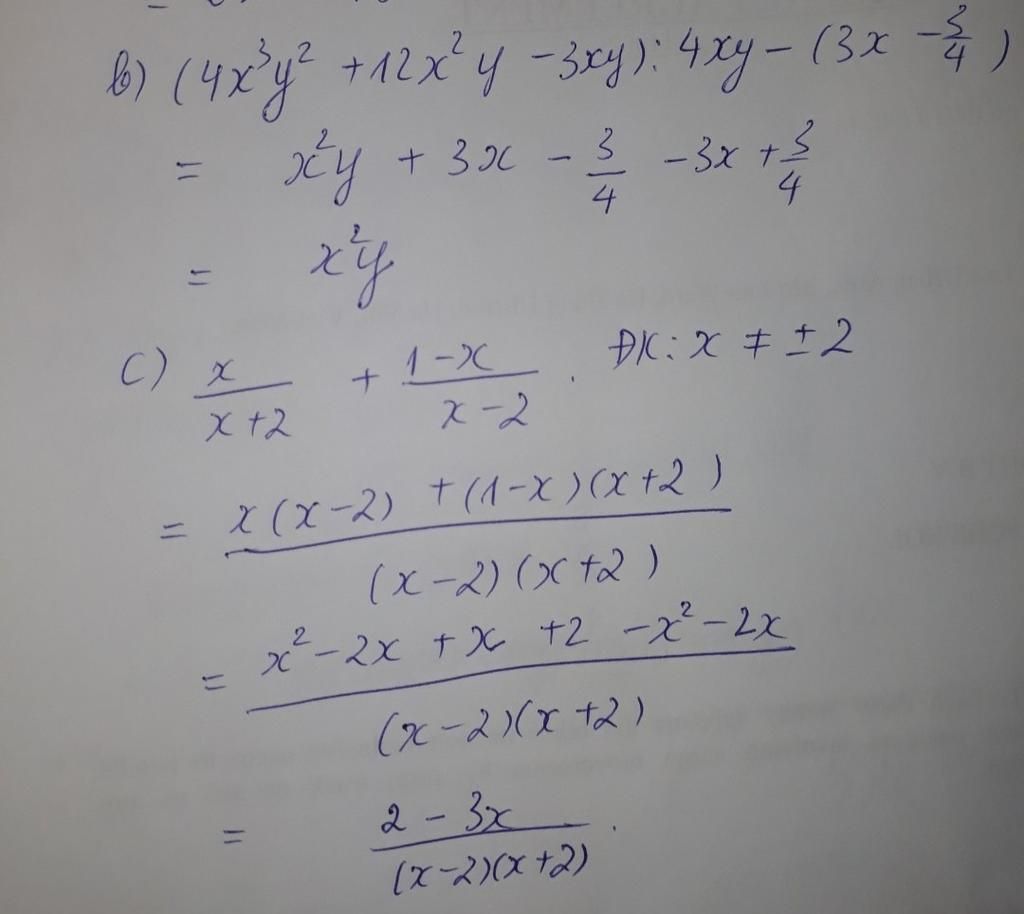 b) (4x³y² + 12x²y - 3xy) : 4xy - (3x - 3/4)
= x²y + 3x - 3/4 - 3x + 3/4
= x²y
c) x/(x+2) + (1-x)/(x-2) . ĐK: x ≠ ±2
= (x(x-2) + (1-x)(x+2))/((x-2)(x+2))
= (x² - 2x + x + 2 - x² - 2x)/((x-2)(x+2))
= (2 - 3x)/((x-2)(x+2)) .